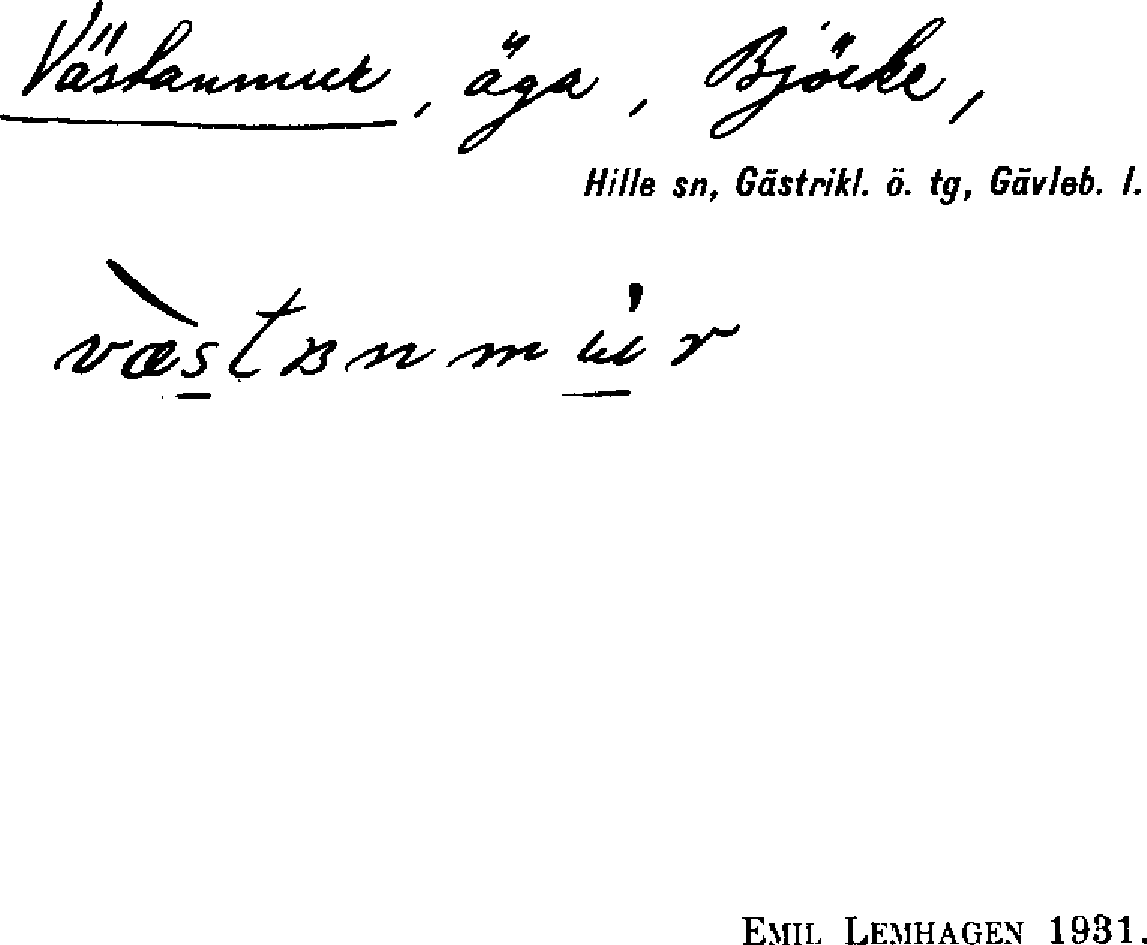 Västanmur, äga, Björke,
Hille sn, Gästrikl. ö. tg, Gävleb. l.
væ̀stɐnmu̍r
EMIL LEMHAGEN 1931.